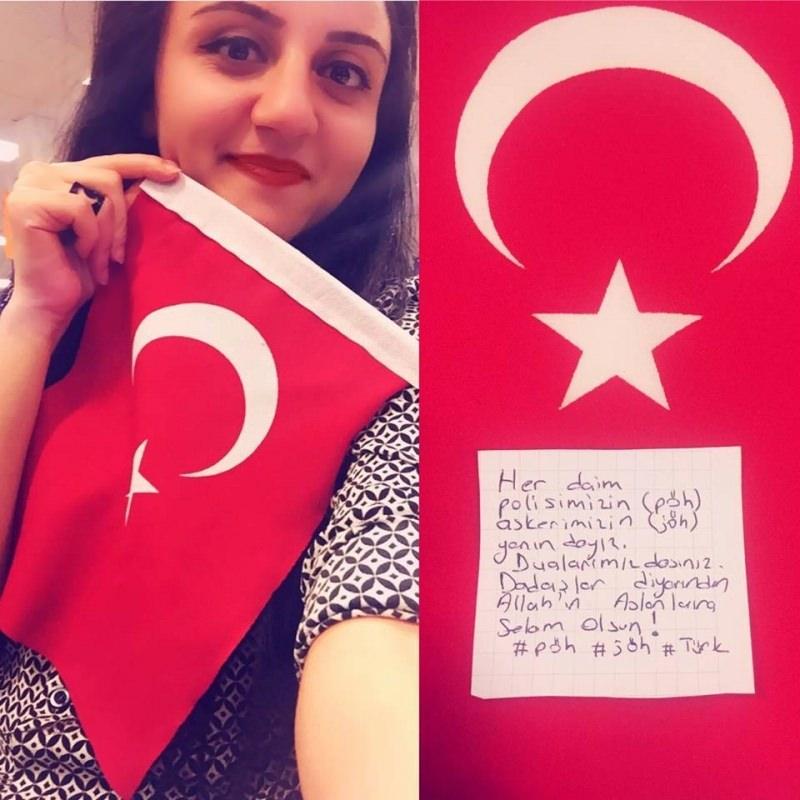 Her daim
polisimizin (pöh)
askerimizin (jöh)
yanındayız.
Dualarımızdasınız.
Dadaşlar diyarından
Allah'ın Aslanlarına
Selam Olsun!
#pöh #jöh #Türk